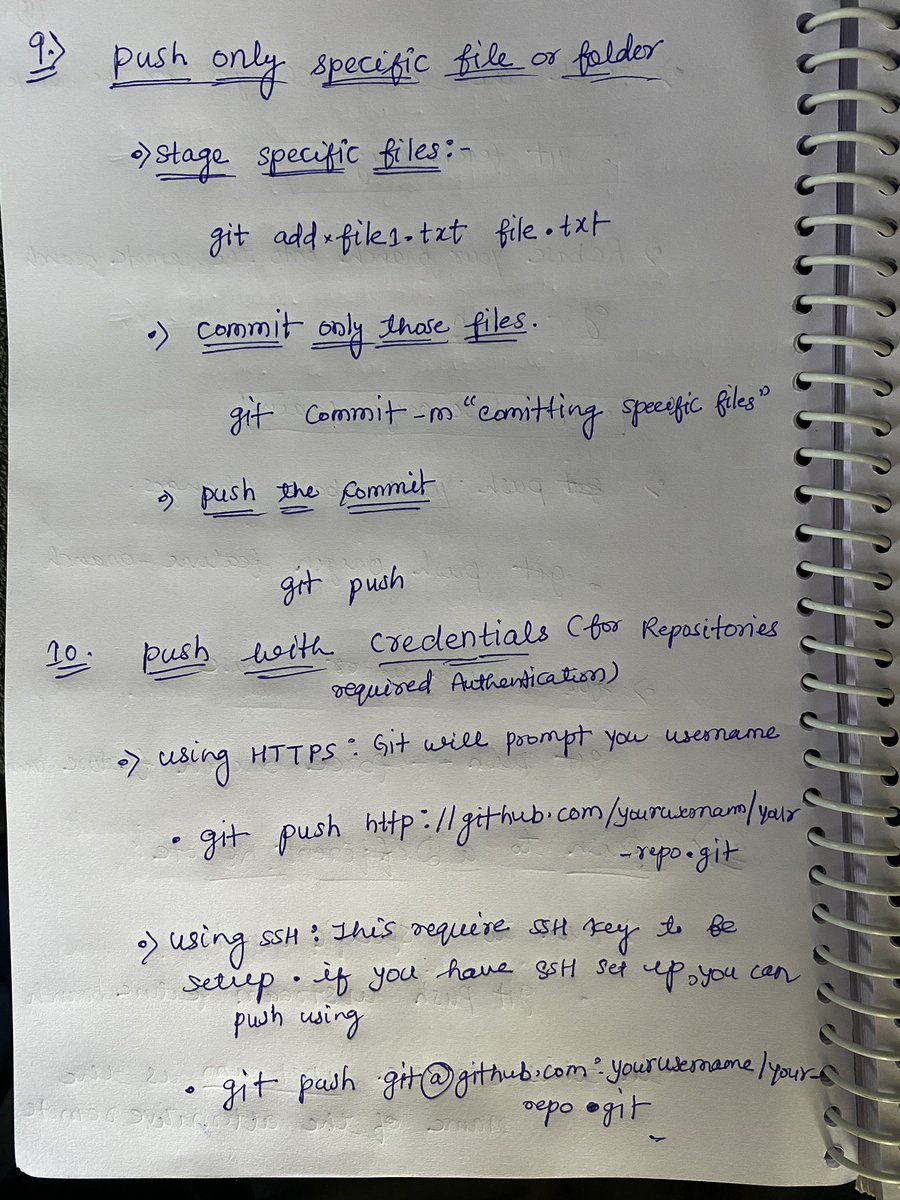 9.) push only specific file or folder
•) stage specific files:-
git add file1.txt file.txt
•) commit only those files.
git commit -m "comitting specific files"
•) push the commit
git push
10. push with credentials (for Repositories
required Authentication)
•) using HTTPS: Git will prompt you username
• git push http://github.com/yourusernam/your
-repo.git
•) using SSH: This require SSH key to be
setup. if you have SSH set up, you can
push using
• git push git@github.com:yourusername/your-
repo.git